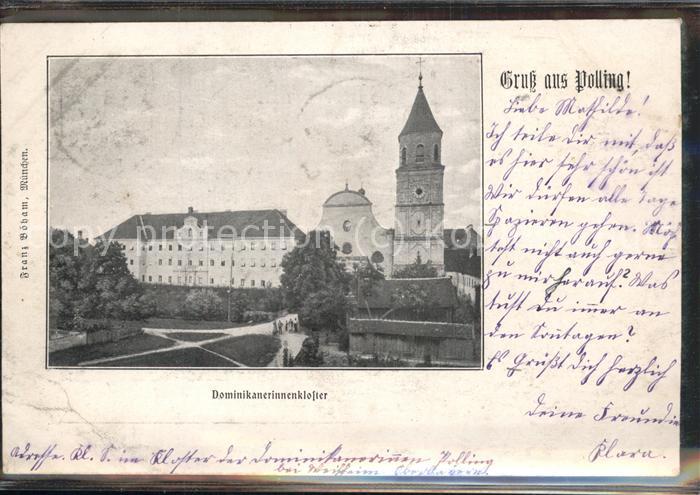 Gruß aus Polling!
Liebe Mathilde!
Ich teile dir mit, daß
es hier sehr schön ist
Wir dürfen alle Tage
Spazieren gehen. Mög
test nicht auch gerne
zu mir herauf? Was
tuhst Du immer an
den Sonntagen?
Es Grüßt dich herzlich
deine Freundin
Klara.
Franz Böham, München.
Dominikanerinnenkloster
Adresse. Kl. S. im Kloster der Dominikanerinnen Polling
bei Weilheim Oberbayern
copyright protected